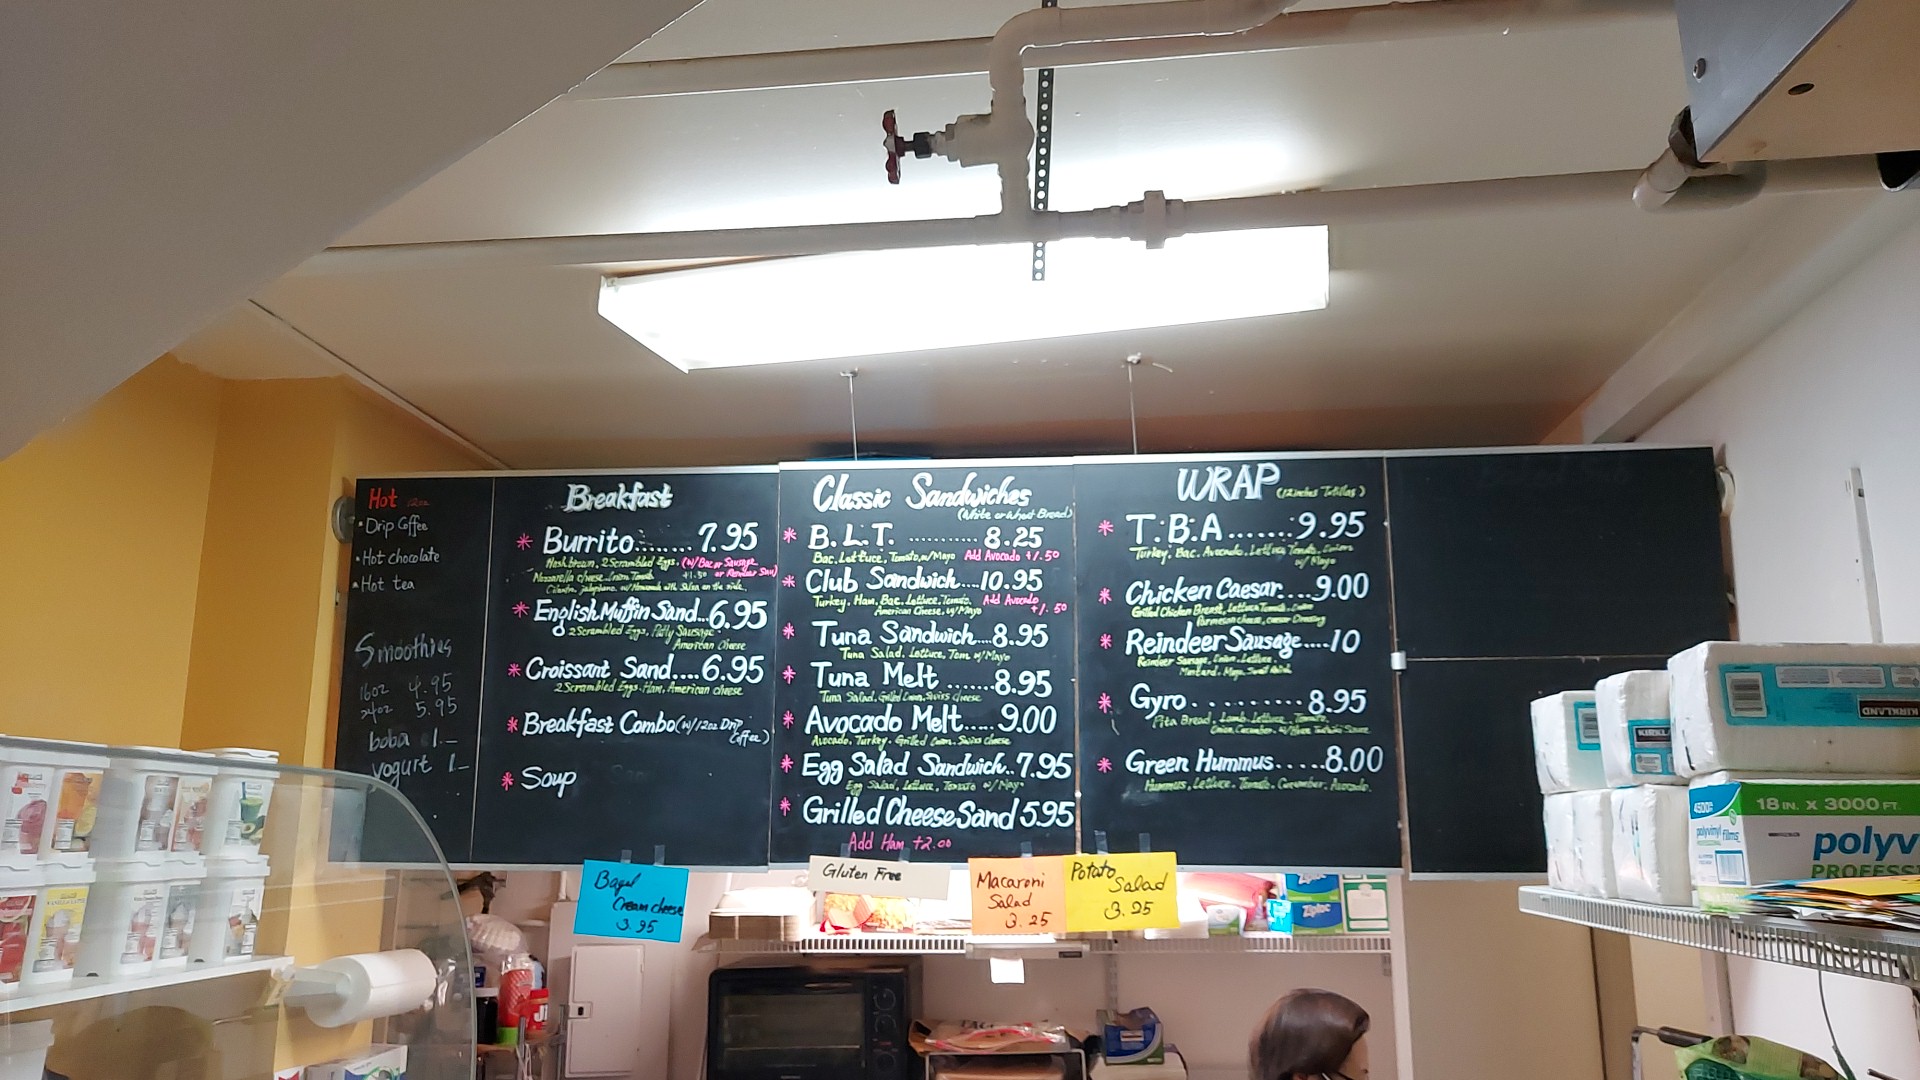 Hot 12oz
• Drip Coffee
• Hot chocolate
• Hot tea
Smoothies
16oz 4.95
24oz 5.95
boba 1.—
yogurt 1.—
Breakfast
* Burrito........7.95
Hashbrown, 2 Scrambled Eggs, (w/Bac or Sausage
Mozzarella cheese, Onion, Tomato +1.50 or Reindeer Sau)
Cilantro, jalapheno, w/Homemade with Salsa on the side.
* English Muffin Sand...6.95
2 Scrambled Eggs, Patty Sausage
American Cheese
* Croissant Sand.....6.95
2 Scrambled Eggs, Ham, American cheese
* Breakfast Combo (w/12oz Drip
Coffee)
* Soup
Classic Sandwiches
(White or Wheat Bread)
* B.L.T. ........... 8.25
Bac, Lettuce, Tomato, w/Mayo Add Avocado +1.50
* Club Sandwich....10.95
Turkey, Ham, Bac, Lettuce, Tomato, Add Avocado
American Cheese, w/Mayo +1.50
* Tuna Sandwich....8.95
Tuna Salad, Lettuce, Tom w/Mayo
* Tuna Melt .......8.95
Tuna Salad, Grilled Onion, Swiss cheese
* Avocado Melt.....9.00
Avocado, Turkey, Grilled Onion, Swiss cheese
* Egg Salad Sandwich..7.95
Egg Salad, Lettuce, Tomato w/Mayo
* Grilled Cheese Sand 5.95
Add Ham +2.00
WRAP (12 inches Tortillas)
* T.B.A........9.95
Turkey, Bac, Avocado, Lettuce, Tomato, Onion
w/Mayo
* Chicken Caesar....9.00
Grilled Chicken Breast, Lettuce, Tomato, Onion
Parmesan cheese, caesar Dressing
* Reindeer Sausage....10
Reindeer Sausage, Onion, Lettuce,
Mustard, Mayo,
* Gyro..........8.95
Pita Bread, Lamb, Lettuce, Tomato,
Onion, Cucumber, w/
* Green Hummus.....8.00
Hummus, Lettuce, Tomato, Cucumber, Avocado.
Bagel
Cream cheese
3.95
Gluten Free
Macaroni
Salad
3.25
Potato
Salad
3.25
KIRKLAND
KIRKLAND
18 IN. X 3000 FT.
polyvinyl
films
polyv
PROFESS
Ziploc
Ziploc